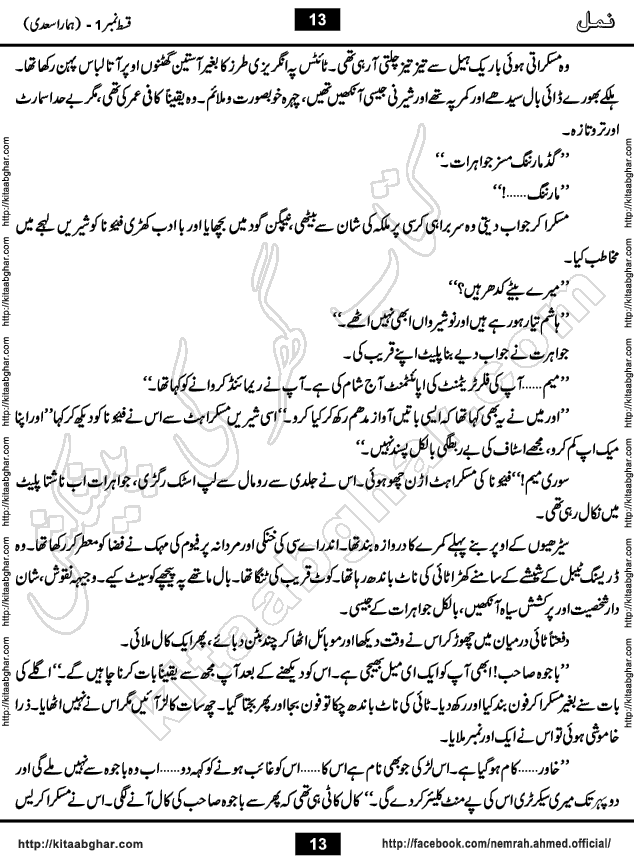 نمل 13 قسط نمبر 1 - (ہمارا سعدی)
وہ مسکراتی ہوئی باریک ہیل سے تیز تیز چلتی آ رہی تھی۔ ٹائٹس پہ انگریزی طرز کا بغیر آستین گھٹنوں اوپر آتا لباس پہن رکھا تھا۔
ہلکے بھورے ڈائی بال سیدھے اور کمر پہ تھے اور شیرنی جیسی آنکھیں تھیں، چہرہ خوبصورت و ملائم۔ وہ یقیناً کافی عمر کی تھی، مگر بے حد اسمارٹ
اور تروتازہ۔
”گڈ مارننگ مسز جواہرات۔“
”مارننگ......!“
مسکرا کر جواب دیتی وہ سربراہی کرسی پر ملکہ کی شان سے بیٹھی، نیپکن گود میں بچھایا اور باادب کھڑی فئیونا کو شیریں لہجے میں
مخاطب کیا۔
”میرے بیٹے کدھر ہیں؟“
”ہاشم تیار ہو رہے ہیں اور نوشیرواں ابھی نہیں اٹھے۔“
جواہرت نے جواب دیے بنا پلیٹ اپنے قریب کی۔
”میم...... آپ کی فلر ٹریٹمنٹ کی اپائنٹمنٹ آج شام کی ہے۔ آپ نے ریمائنڈ کروانے کو کہا تھا۔“
”اور میں نے یہ بھی کہا تھا کہ ایسی باتیں آواز مدھم رکھ کر کیا کرو۔“ اسی شیریں مسکراہٹ سے اس نے فئیونا کو دیکھ کر کہا ”اور اپنا
میک اپ کم کرو، مجھے اسٹاف کی بے ربطگی بالکل پسند نہیں۔“
سوری میم!“ فئیونا کی مسکراہٹ اڑن چھو ہوئی۔ اس نے جلدی سے رومال سے لپ اسٹک رگڑی، جواہرات اب ناشتا پلیٹ
میں نکال رہی تھی۔
سیڑھیوں کے اوپر بنے پہلے کمرے کا دروازہ بند تھا۔ اندر اے سی کی خنکی اور مردانہ پرفیوم کی مہک نے فضا کو معطر کر رکھا تھا۔ وہ
ڈریسنگ ٹیبل کے شیشے کے سامنے کھڑا ٹائی کی ناٹ باندھ رہا تھا۔ کوٹ قریب کی ٹنگا تھا۔ بال ماتھے پہ پیچھے کو سیٹ کیے۔ وجیہہ نقوش، شان
دار شخصیت اور پرکشش سیاہ آنکھیں، بالکل جواہرات کے جیسی۔
دفعتاً ٹائی درمیان میں چھوڑ کر اس نے وقت دیکھا اور موبائل اٹھا کر چند بٹن دبائے، پھر ایک کال ملائی۔
”باجوہ صاحب! ابھی آپ کو ایک ای میل بھیجی ہے۔ اس کو دیکھنے کے بعد آپ مجھ سے یقیناً بات کرنا چاہیں گے۔“ اگلے کی
بات سنے بغیر مسکرا کر فون بند کیا اور رکھ دیا۔ ٹائی کی ناٹ باندھ چکا تو فون بجا اور پھر بجتا گیا۔ چھ سات کالز آئیں مگر اس نے نہیں اٹھایا۔ ذرا
خاموشی ہوئی تو اس نے ایک اور نمبر ملایا۔
”خاور...... کام ہو گیا ہے۔ اس لڑکی جو بھی نام ہے اس کا...... اس کو غائب ہونے کو کہہ دو...... اب وہ باجوہ سے نہیں ملے گی اور
دوپہر تک میری سیکرٹری اس کی پے منٹ کلیئر کر دے گی۔“ کال کاٹی ہی تھی کہ پھر سے باجوہ صاحب کی کال آنے لگی۔ اس نے مسکرا کر یس
http://kitaabghar.com 13 http://facebook.com/nemrah.ahmed.official/
http://kitaabghar.com http://kitaabghar.com http://kitaabghar.com http://kitaabghar.com http://kitaabghar.com http://kitaabghar.com
http://kitaabghar.com http://kitaabghar.com http://kitaabghar.com http://kitaabghar.com http://kitaabghar.com http://kitaabghar.com
کتاب گھر کی پیشکش
kitaabghar.com